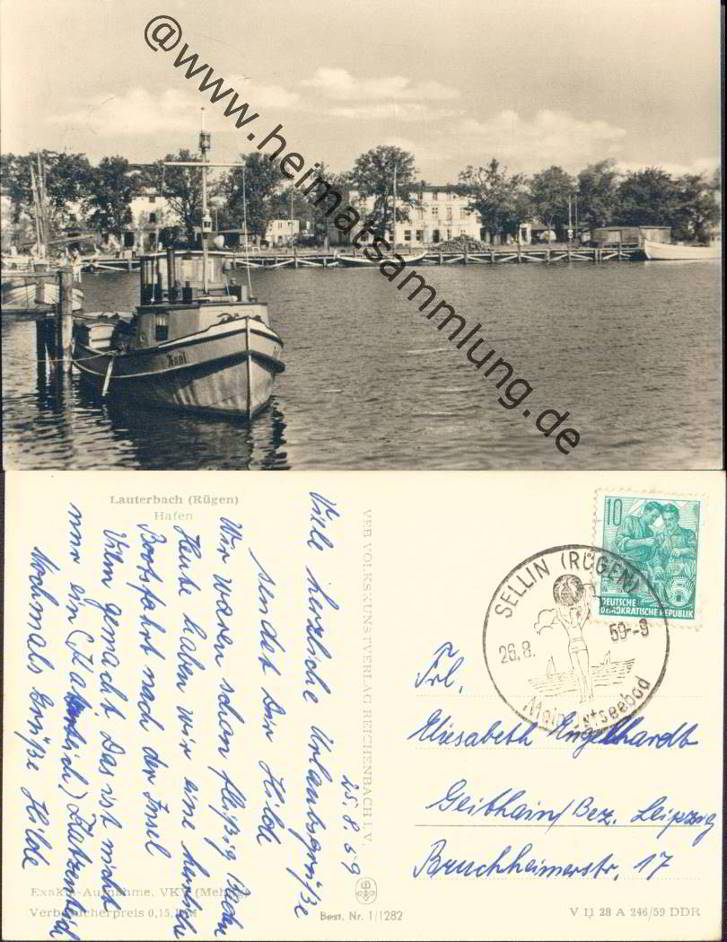 @www.heimatsammlung.de
Anni
Lauterbach (Rügen)
Hafen
25.8.59
Viele herzliche Urlaubsgrüße
sendet Dir Hilde
Wir waren schon fleißig baden
Heute haben wir eine herrliche
Bootsfahrt nach der Insel
Vilm gemacht. Das ist nicht
nur ein (natürlich)
Nochmals Grüße Hilde
VEB VOLKSKUNSTVERLAG REICHENBACH I. V.
10
DEUTSCHE
DEMOKRATISCHE REPUBLIK
5
SELLIN (RÜGEN)
26.8.
59--9
Ostseebad
Frl.
Elisabeth Engelhardt
Geithain/Bez. Leipzig
Bruchheimerstr. 17
Exakta-Aufnahme, VKV
Verbraucherpreis 0,15 DM
Best. Nr. 1/1282
V 11 28 A 246/59 DDR